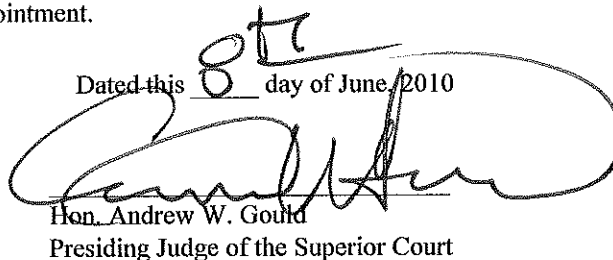 ointment.
Dated this 8th day of June, 2010
Hon. Andrew W. Gould
Presiding Judge of the Superior Court